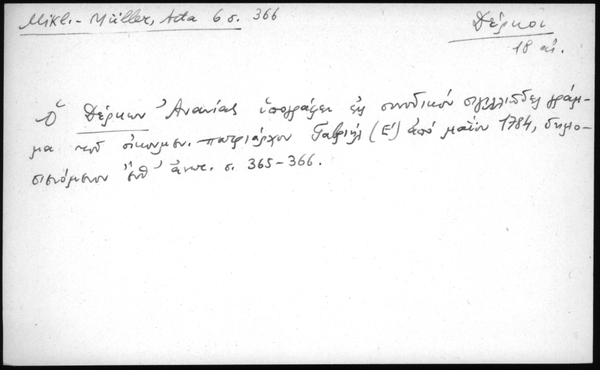 Mikl.-Müller, Acta 6 σ. 366
Δέρκοι
18 αἰ.
Ὁ Δέρκων Ἀνανίας ὑπογράφει εἰς συνοδικόν σιγιλλιῶδες γράμ-
μα τοῦ οἰκουμεν. πατριάρχου Γαβριήλ (Ε΄) ἀπό μαΐου 1784, δημο-
σιευόμενον ἔνθ᾽ ἀνωτ. σ. 365-366.